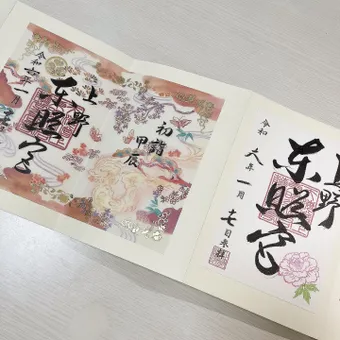 上野
東照宮
令和六年一月七日奉拝
初詣
甲辰
上野
東照宮
令和六年一